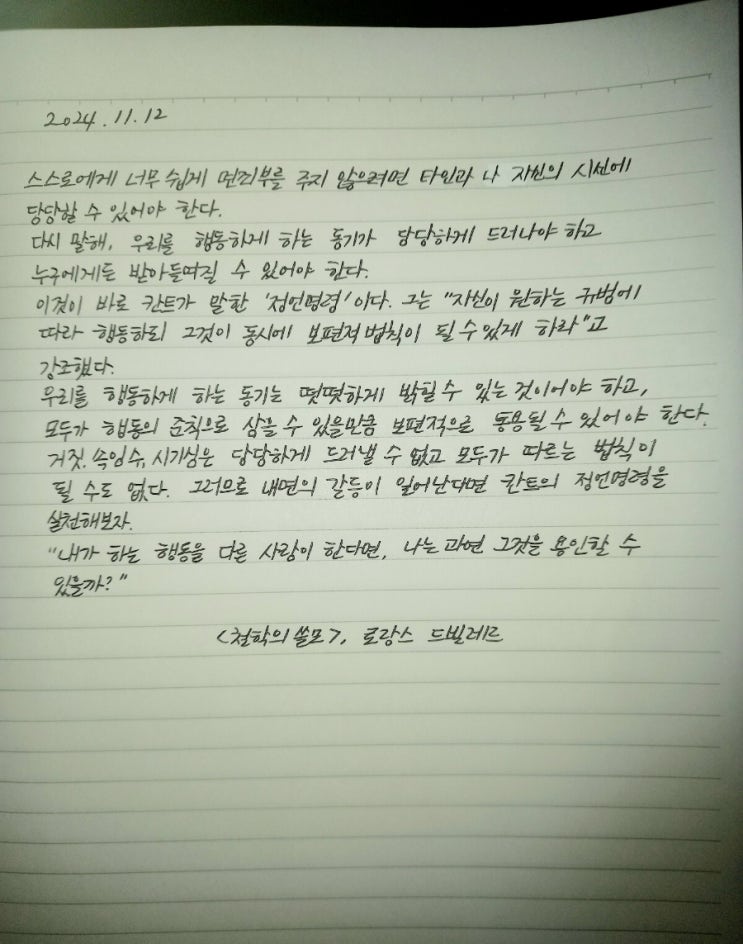 2024. 11. 12
스스로에게 너무 쉽게 면죄부를 주지 않으려면 타인과 나 자신의 시선에
당당할 수 있어야 한다.
다시 말해, 우리를 행동하게 하는 동기가 당당하게 드러나야 하고
누구에게든 받아들여질 수 있어야 한다.
이것이 바로 칸트가 말한 '정언명령'이다. 그는 "자신이 원하는 규범에
따라 행동하되 그것이 동시에 보편적 법칙이 될 수 있게 하라"고
강조했다.
우리를 행동하게 하는 동기는 떳떳하게 밝힐 수 있는 것이어야 하고,
모두가 행동의 준칙으로 삼을 수 있을만큼 보편적으로 통용될 수 있어야 한다.
거짓, 속임수, 시기심은 당당하게 드러낼 수 없고 모두가 따르는 법칙이
될 수도 없다. 그러므로 내면의 갈등이 일어난다면 칸트의 정언명령을
실천해보자.
"내가 하는 행동을 다른 사람이 한다면, 나는 과연 그것을 용인할 수
있을까?"
<철학의 쓸모>, 로랑스 드빌레르